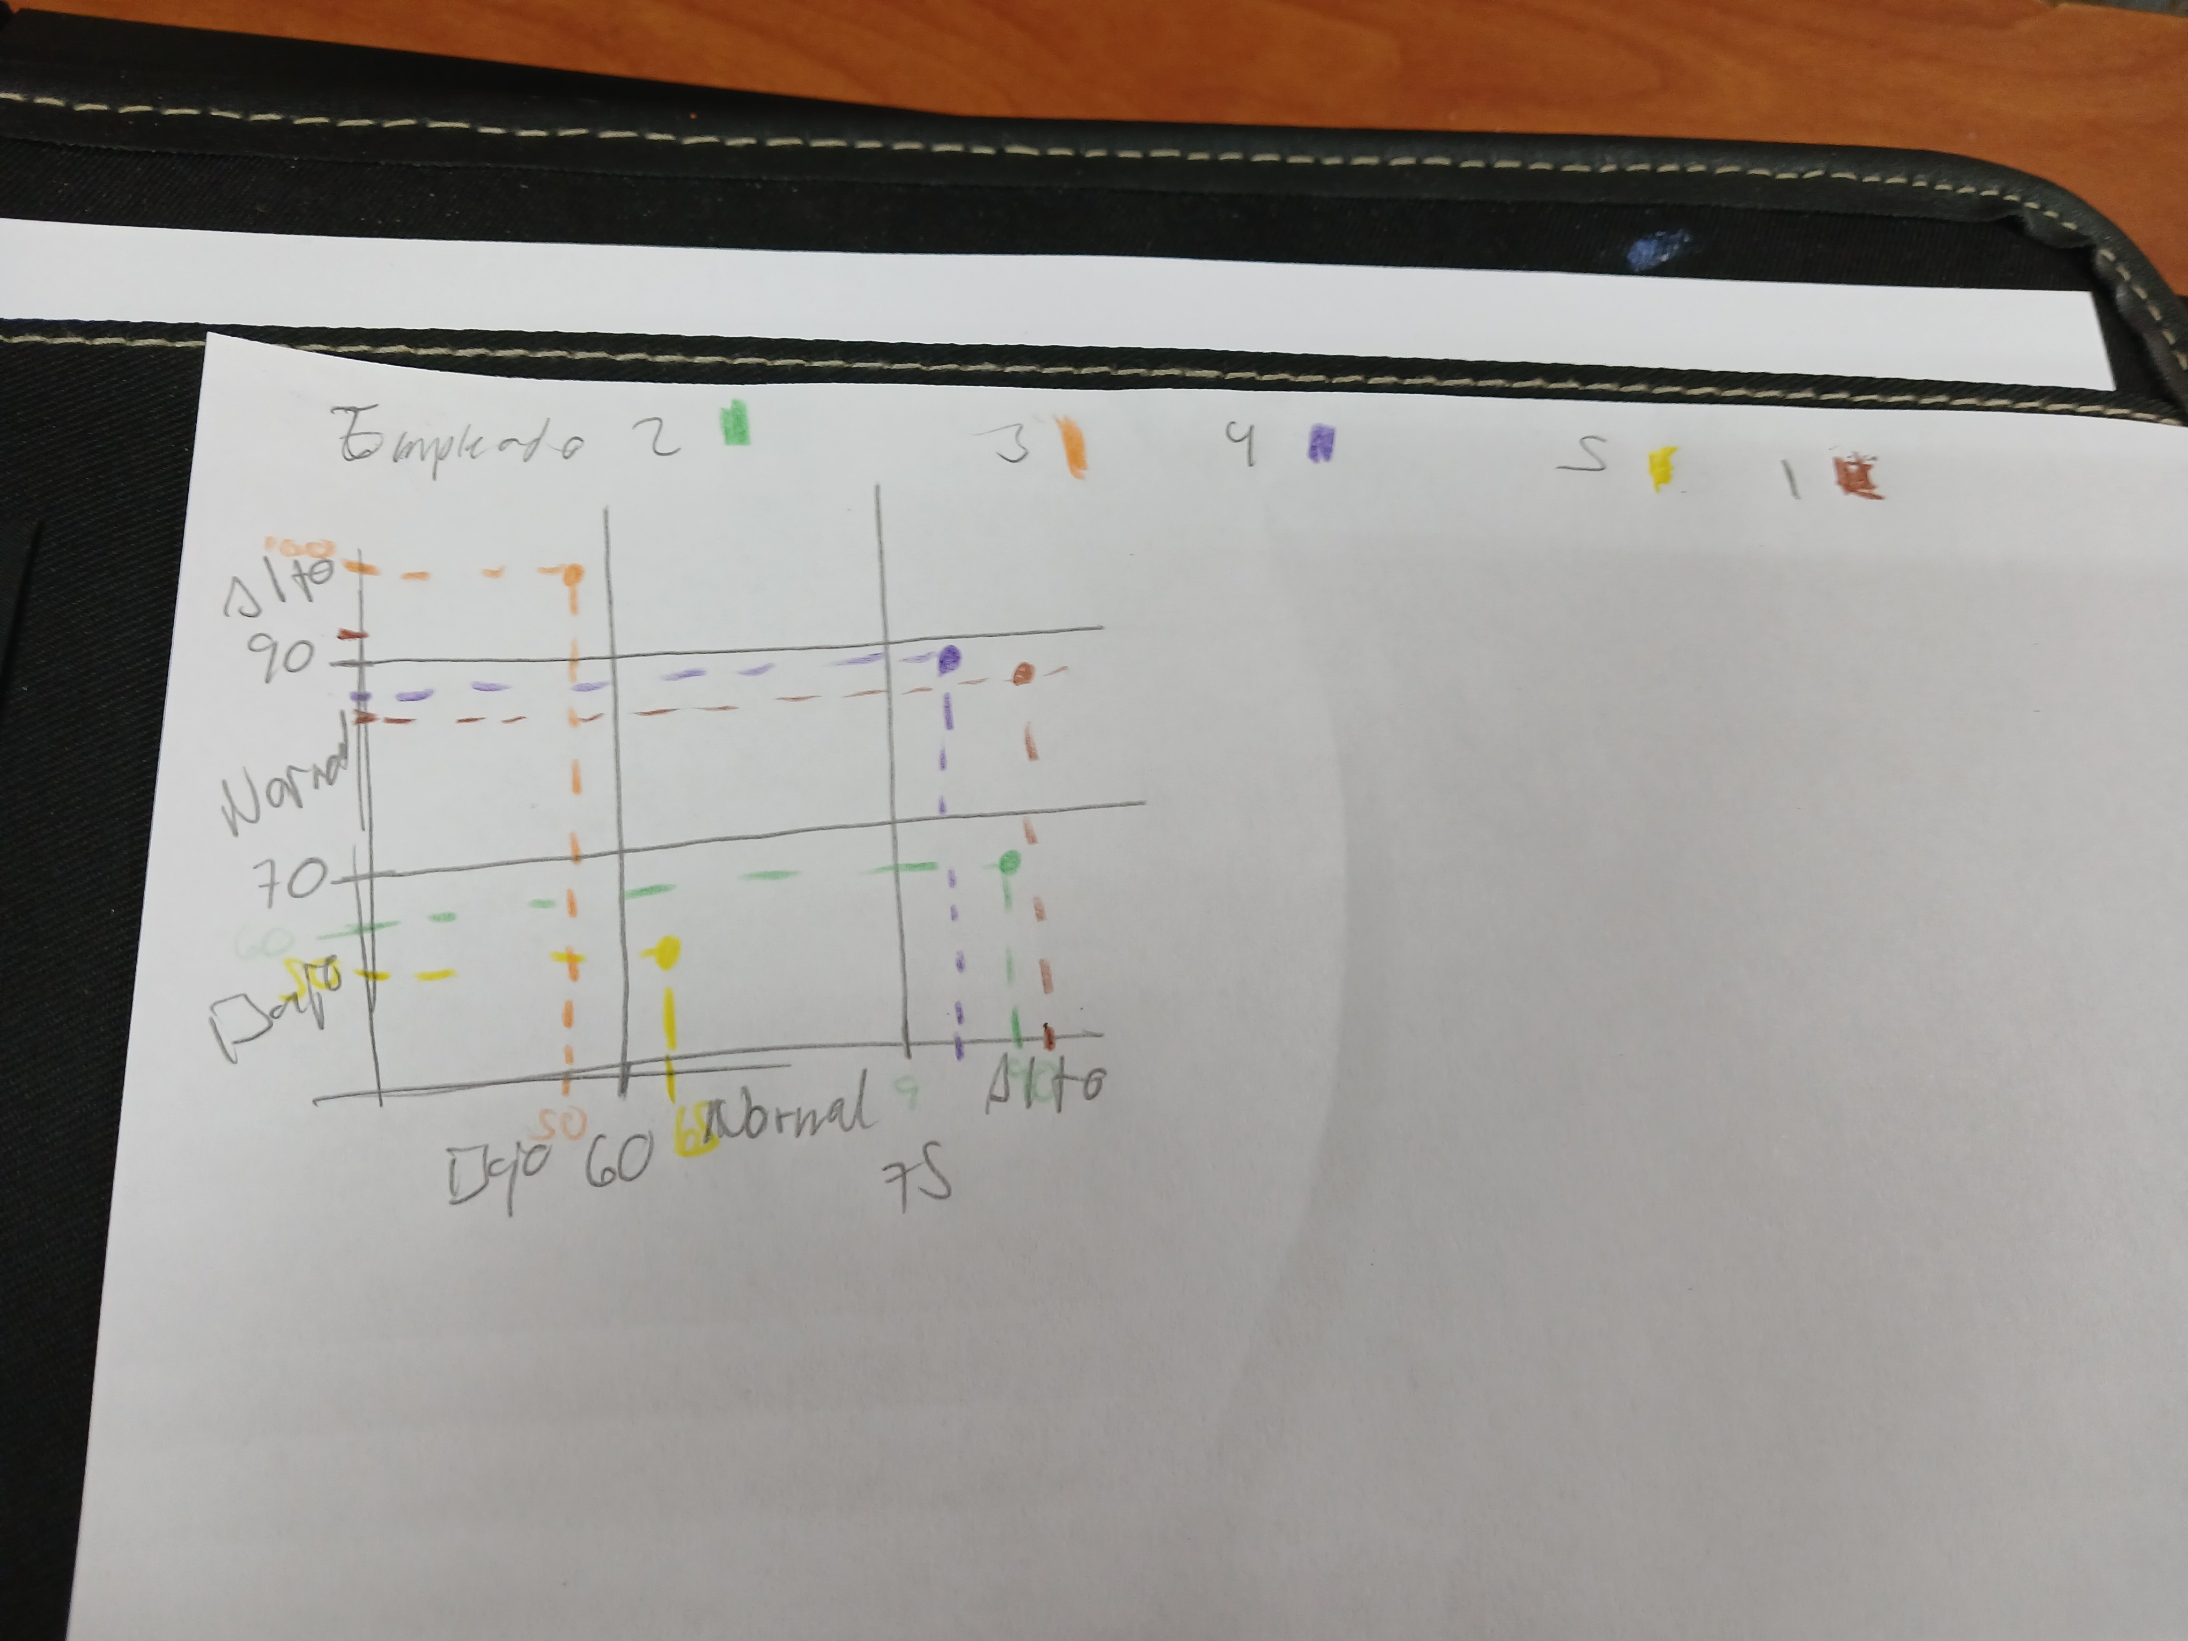 Empleado 2 3 4 5 1
100
Alto
90
Normal
70
60
50
Bajo
50 65 Normal 9 Alto
Bajo 60 75